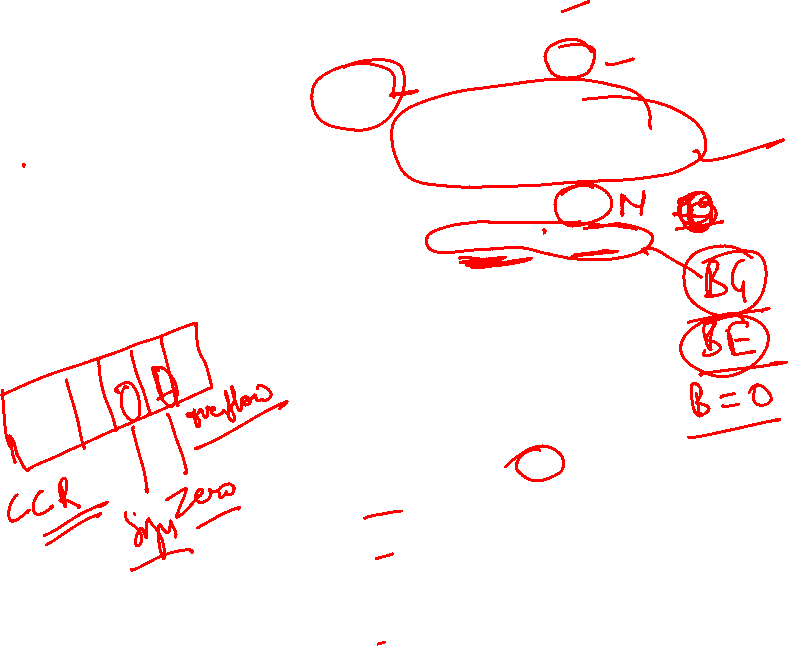 N
BG
BE
B = 0
0 0
overflow
CCR
Sign
Zero